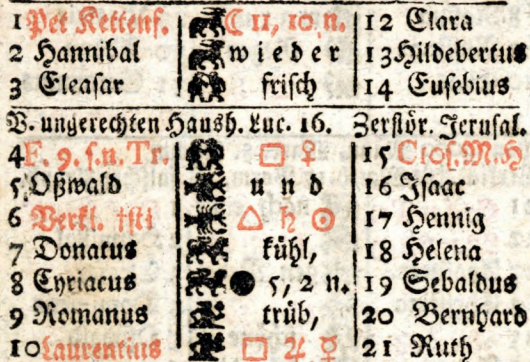 1 Pet Kettenf. ☾ 11, 10, n. 12 Clara
2 Hannibal wieder 13 Hildebertus
3 Eleasar frisch 14 Eusebius
V. ungerechten Haush. Luc. 16. Zerstör. Jerusal.
4 F. 9. s. n. Tr. □ ♀ 15 Clos. M. H
5 Oßwald und 16 Isaac
6 Verkl. †sti △ ♄ ☉ 17 Hennig
7 Donatus kühl, 18 Helena
8 Cyriacus ● 5, 2 n. 19 Sebaldus
9 Romanus trüb, 20 Bernhard
10 Laurentius □ ♃ ☿ 21 Ruth